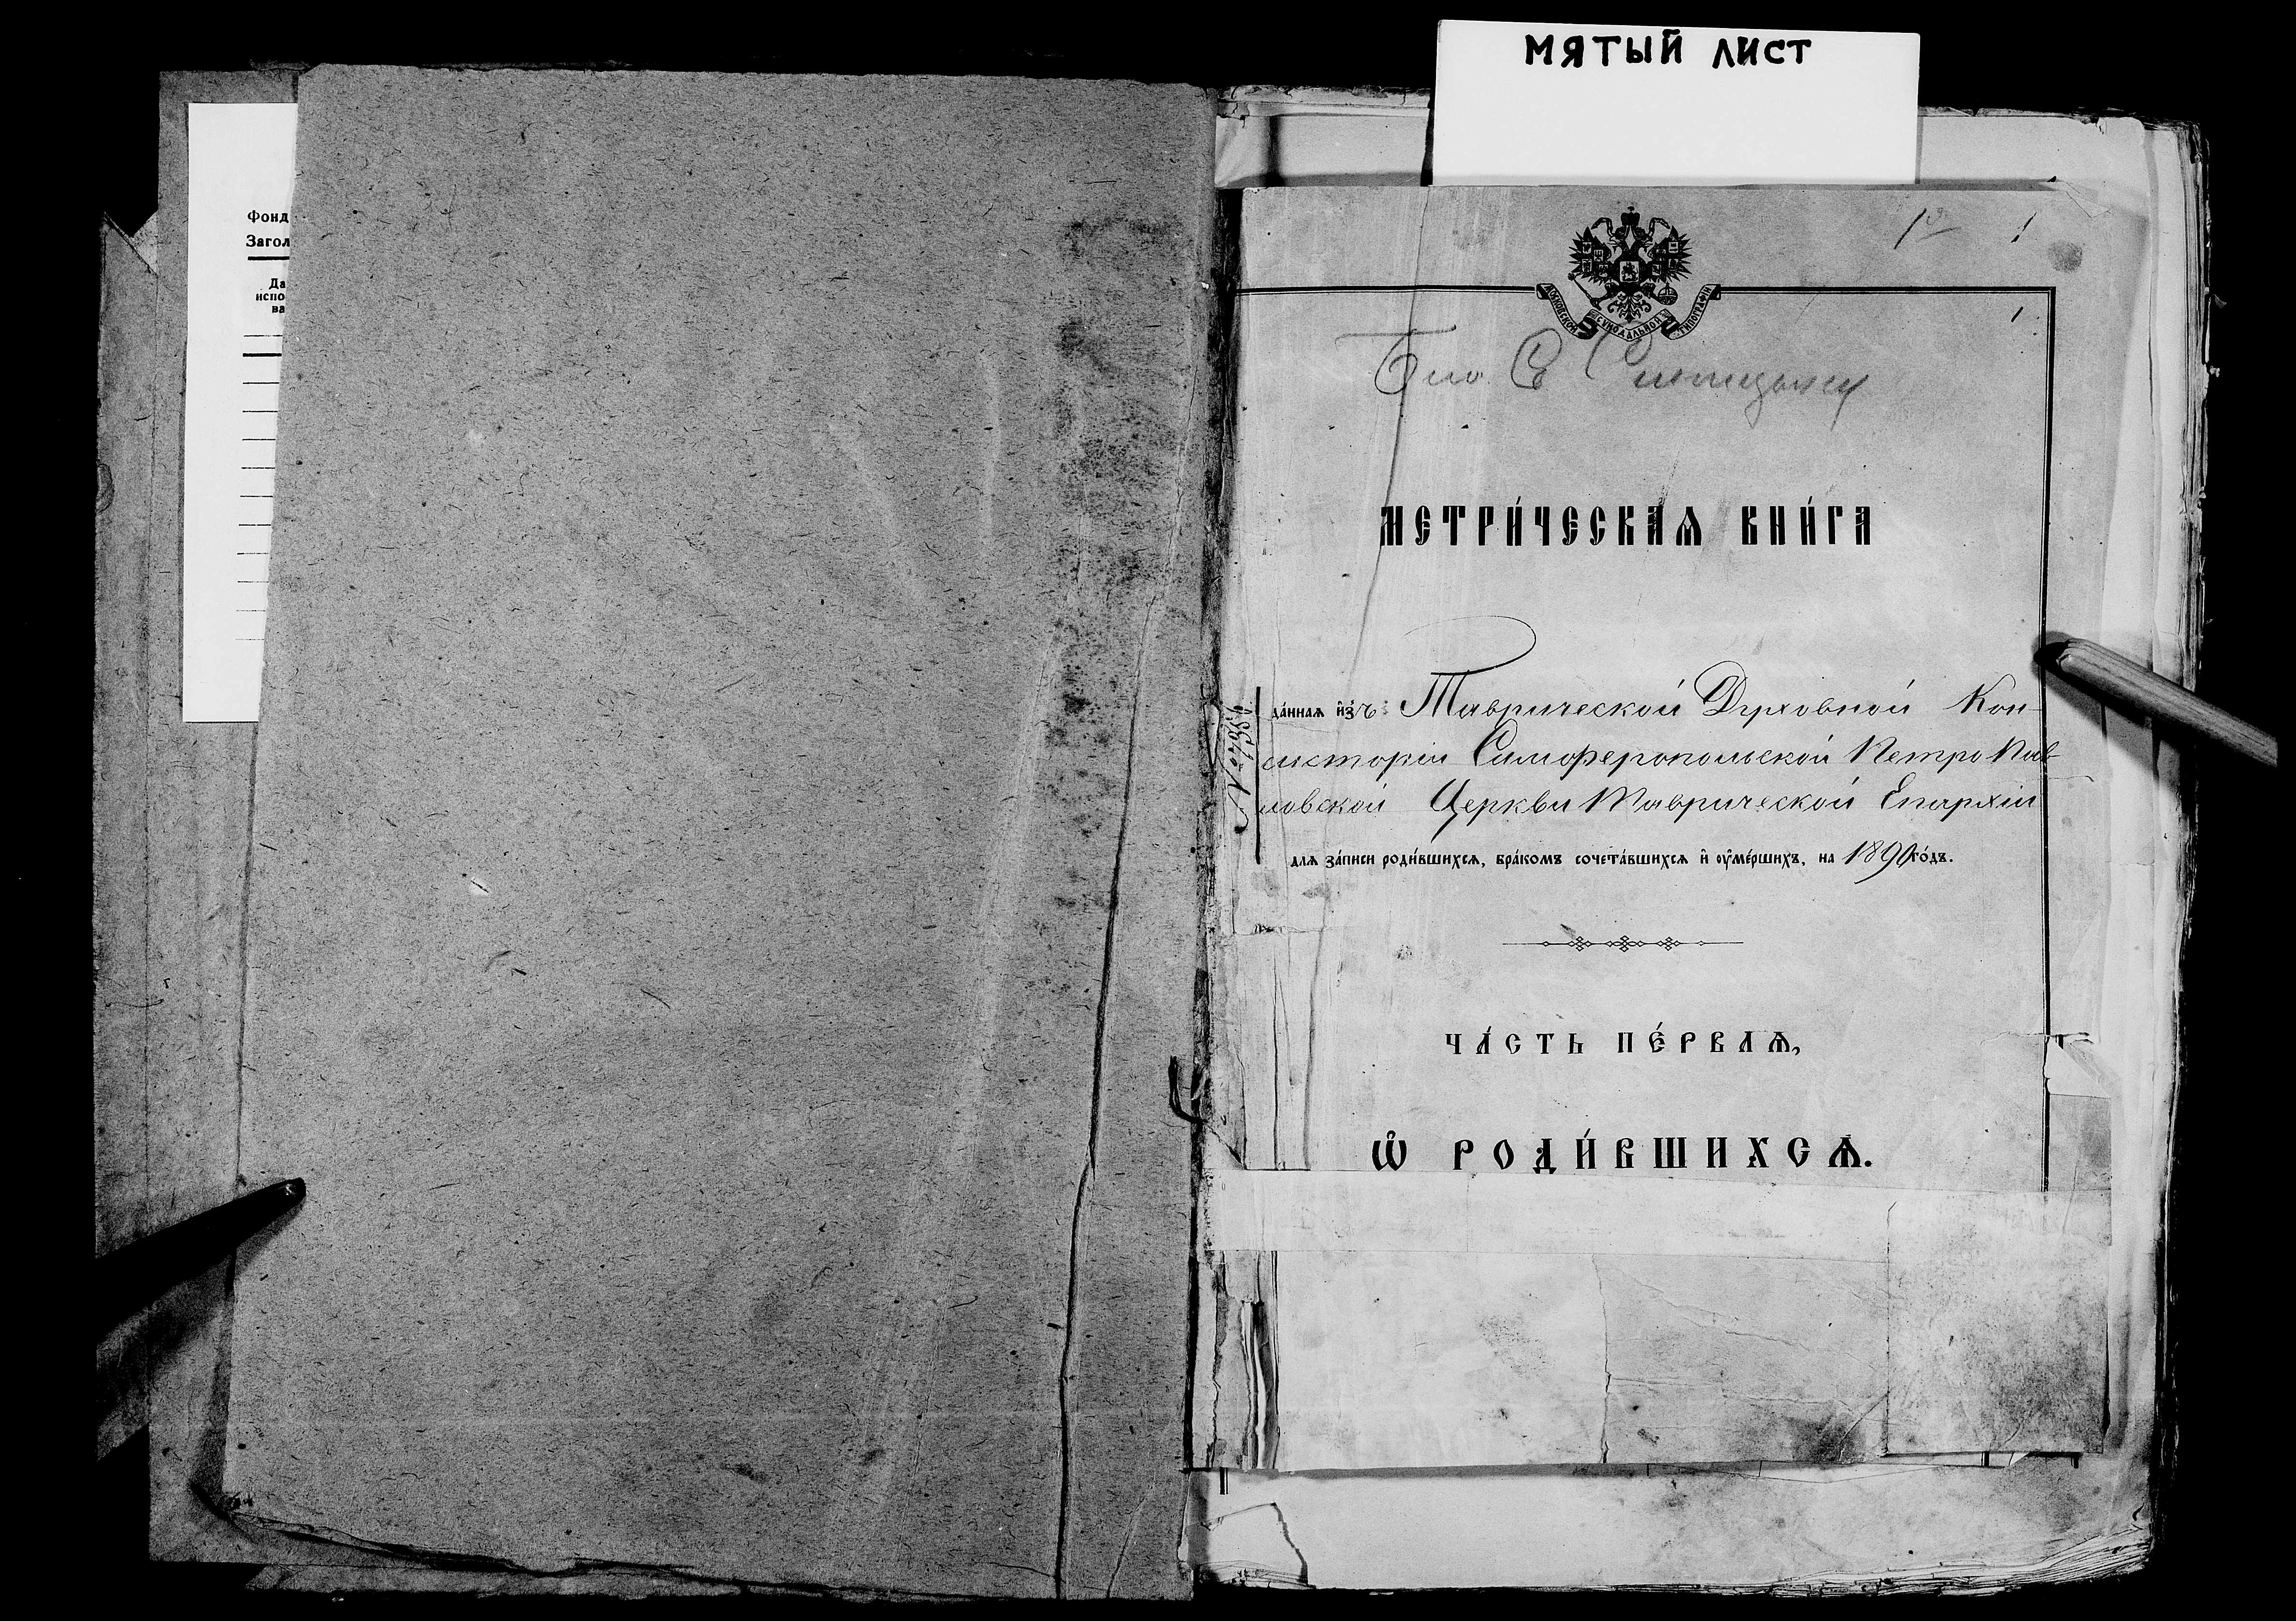 МЯТЫЙ ЛИСТ
Фонд
Загол
Да
испо
ва
1
МОСКОВСКОЙ СѴНОДАЛЬНОЙ ТИПОГРАФІИ
1
МЕТРИ́ЧЕСКАѦ КНИ́ГА
да́ннаѧ и҆зъ Таврической Духовной Кон-
систоріи Симферопольской Петро Пав-
ловской Церкви Таврической Епархіи
длѧ за́писи роди́вшихсѧ, бра́комъ сочета́вшихсѧ и҆ ᲂу҆ме́ршихъ, на 1890 го́дъ.
ЧА́СТЬ ПЕ́РВАѦ,
Ѡ҆ РОДИ́ВШИХСѦ.